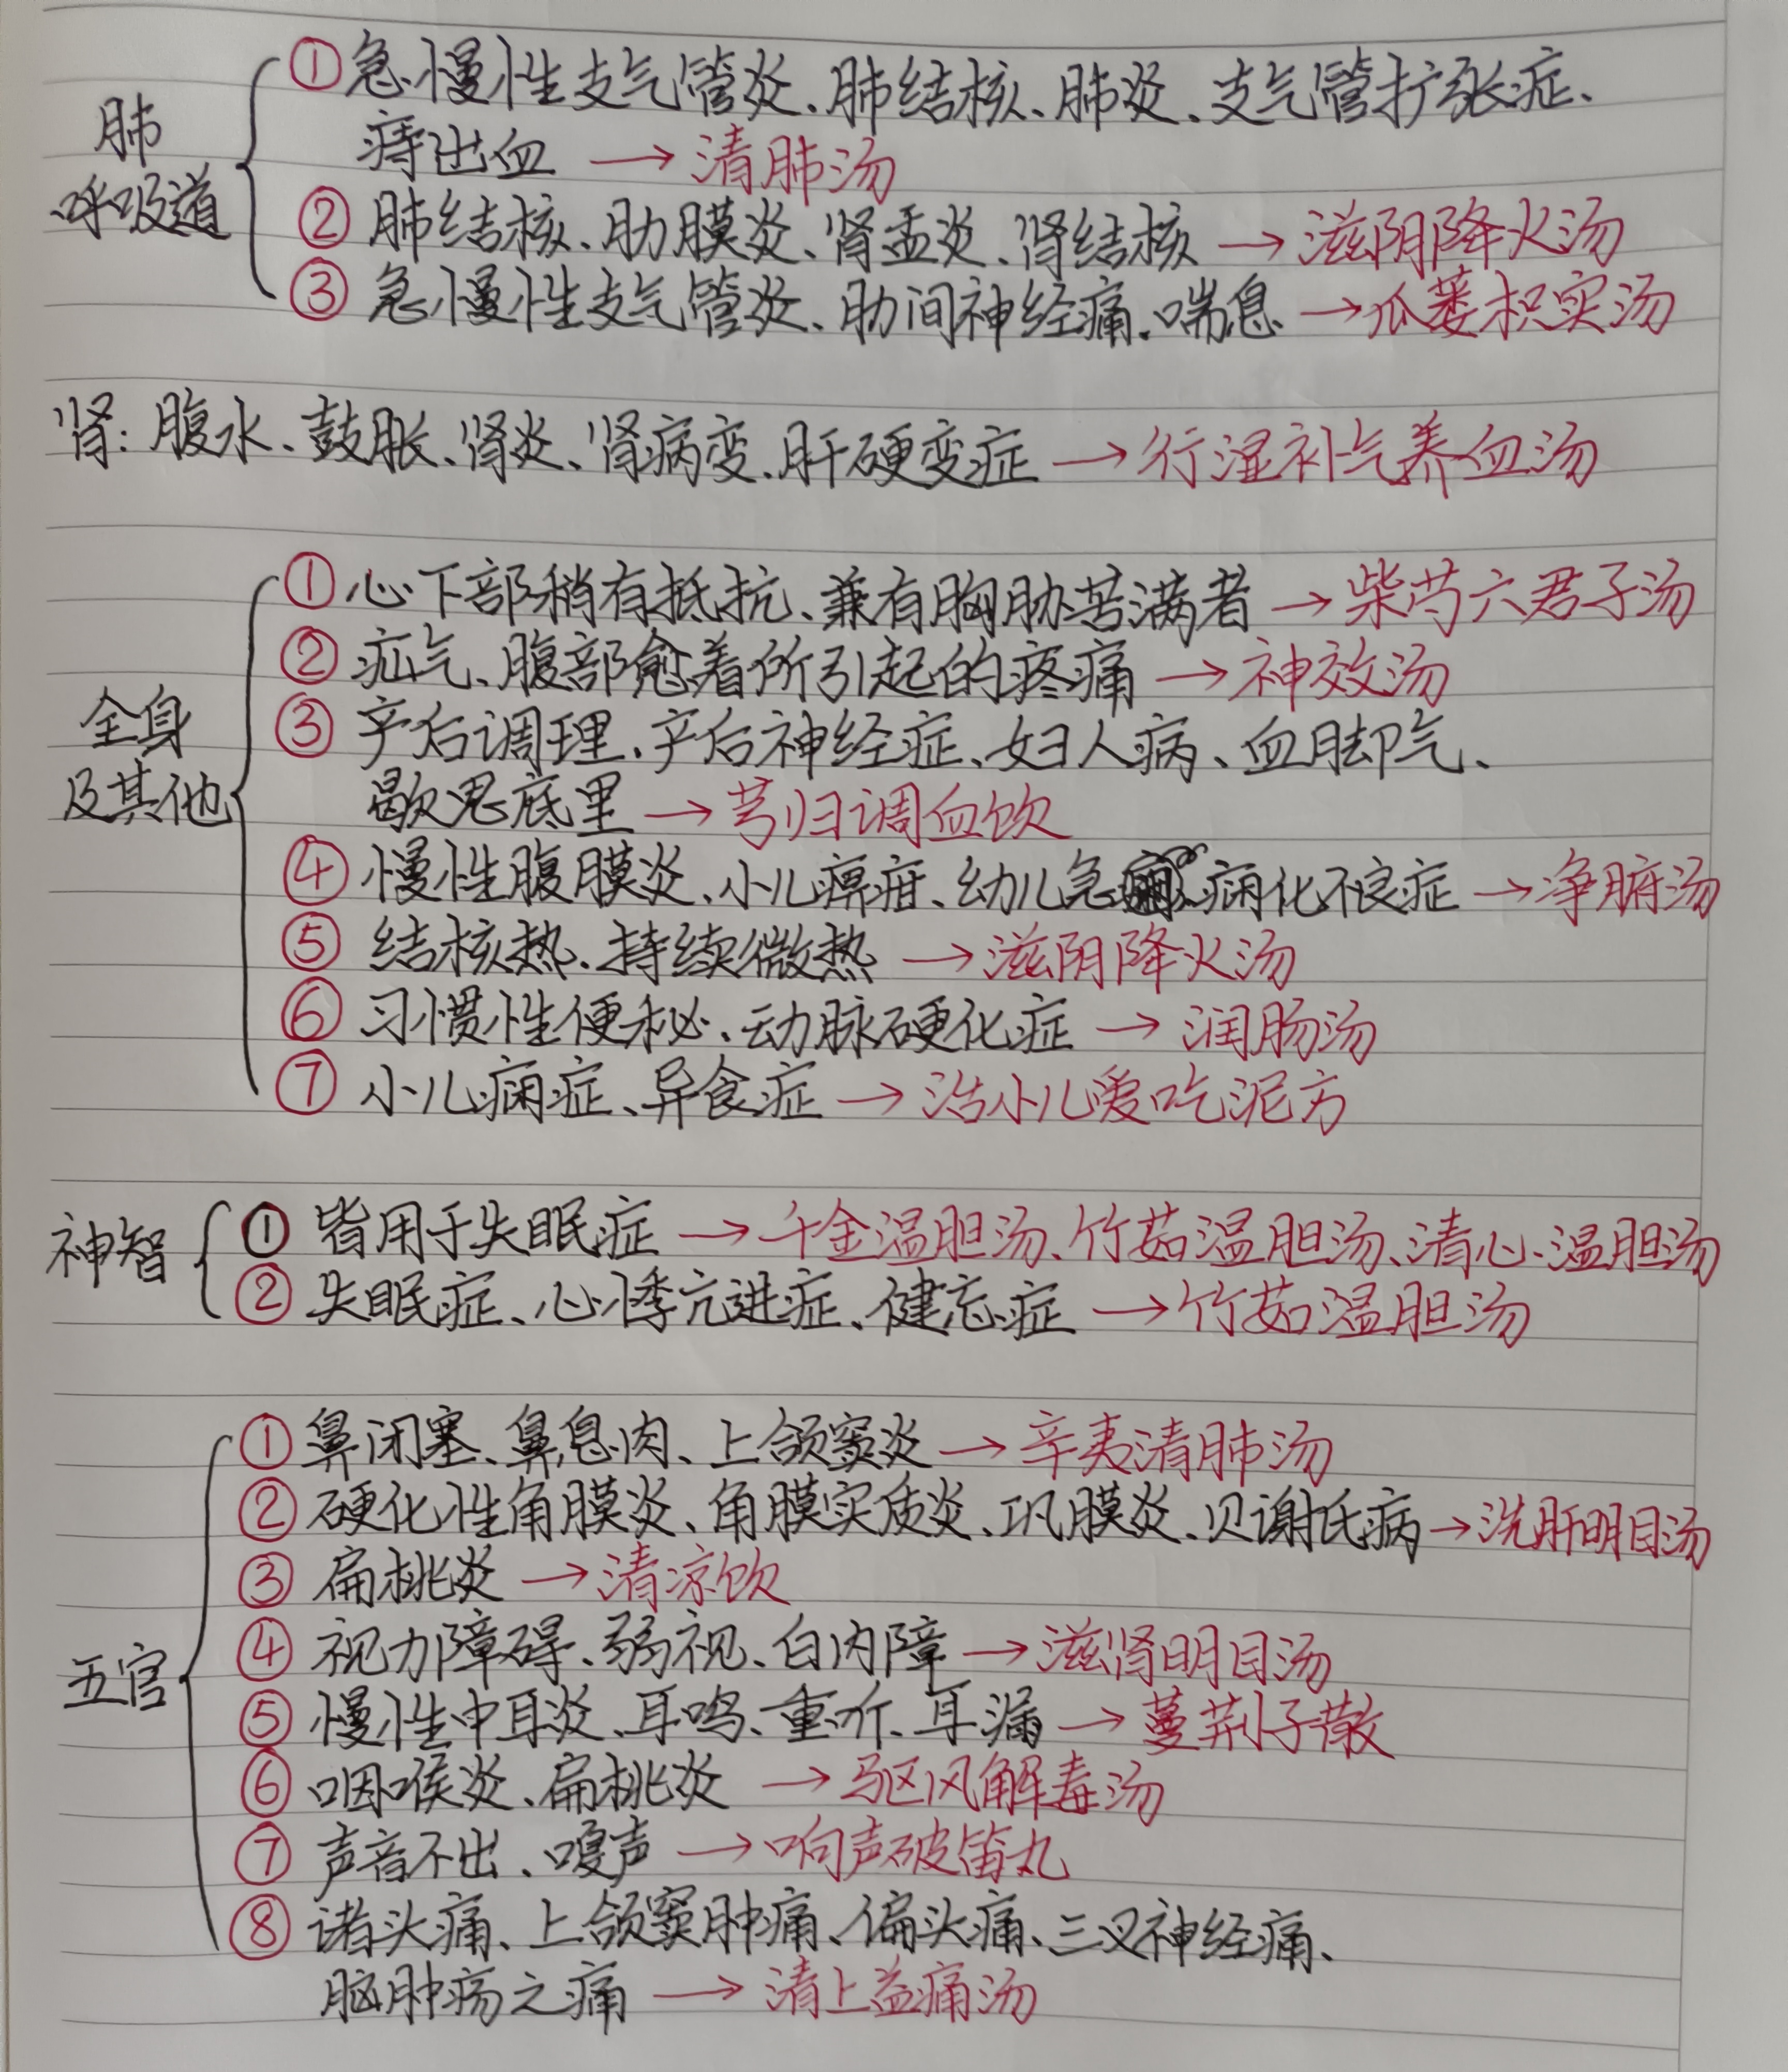 肺
呼吸道
①急慢性支气管炎、肺结核、肺炎、支气管扩张症、
痔出血 → 清肺汤
② 肺结核、肋膜炎、肾盂炎、肾结核 → 滋阴降火汤
③ 急慢性支气管炎、肋间神经痛、喘息 → 瓜蒌枳实汤
肾：腹水、鼓胀、肾炎、肾病变、肝硬变症 → 行湿补气养血汤
全身
及其他
①心下部稍有抵抗、兼有胸胁苦满者 → 柴芍六君子汤
② 疝气、腹部愈着所引起的疼痛 → 神效汤
③ 产后调理、产后神经症、妇人病、血脚气、
歇思底里 → 芎归调血饮
④ 慢性腹膜炎、小儿痹疳、幼儿急痫化不良症 → 净腑汤
⑤ 结核热、持续微热 → 滋阴降火汤
⑥ 习惯性便秘、动脉硬化症 → 润肠汤
⑦ 小儿痫症、异食症 → 治小儿爱吃泥方
神智
① 皆用于失眠症 → 千金温胆汤、竹茹温胆汤、清心温胆汤
② 失眠症、心悸亢进症、健忘症 → 竹茹温胆汤
五官
① 鼻闭塞、鼻息肉、上颌窦炎 → 辛夷清肺汤
② 硬化性角膜炎、角膜实质炎、巩膜炎、贝谢氏病 → 洗肝明目汤
③ 扁桃炎 → 清凉饮
④ 视力障碍、弱视、白内障 → 滋肾明目汤
⑤ 慢性中耳炎、耳鸣、重听、耳漏 → 蔓荆子散
⑥ 咽喉炎、扁桃炎 → 驱风解毒汤
⑦ 声音不出、嗄声 → 响声破笛丸
⑧ 诸头痛、上颌窦肿痛、偏头痛、三叉神经痛、
脑肿疡之痛 → 清上益痛汤